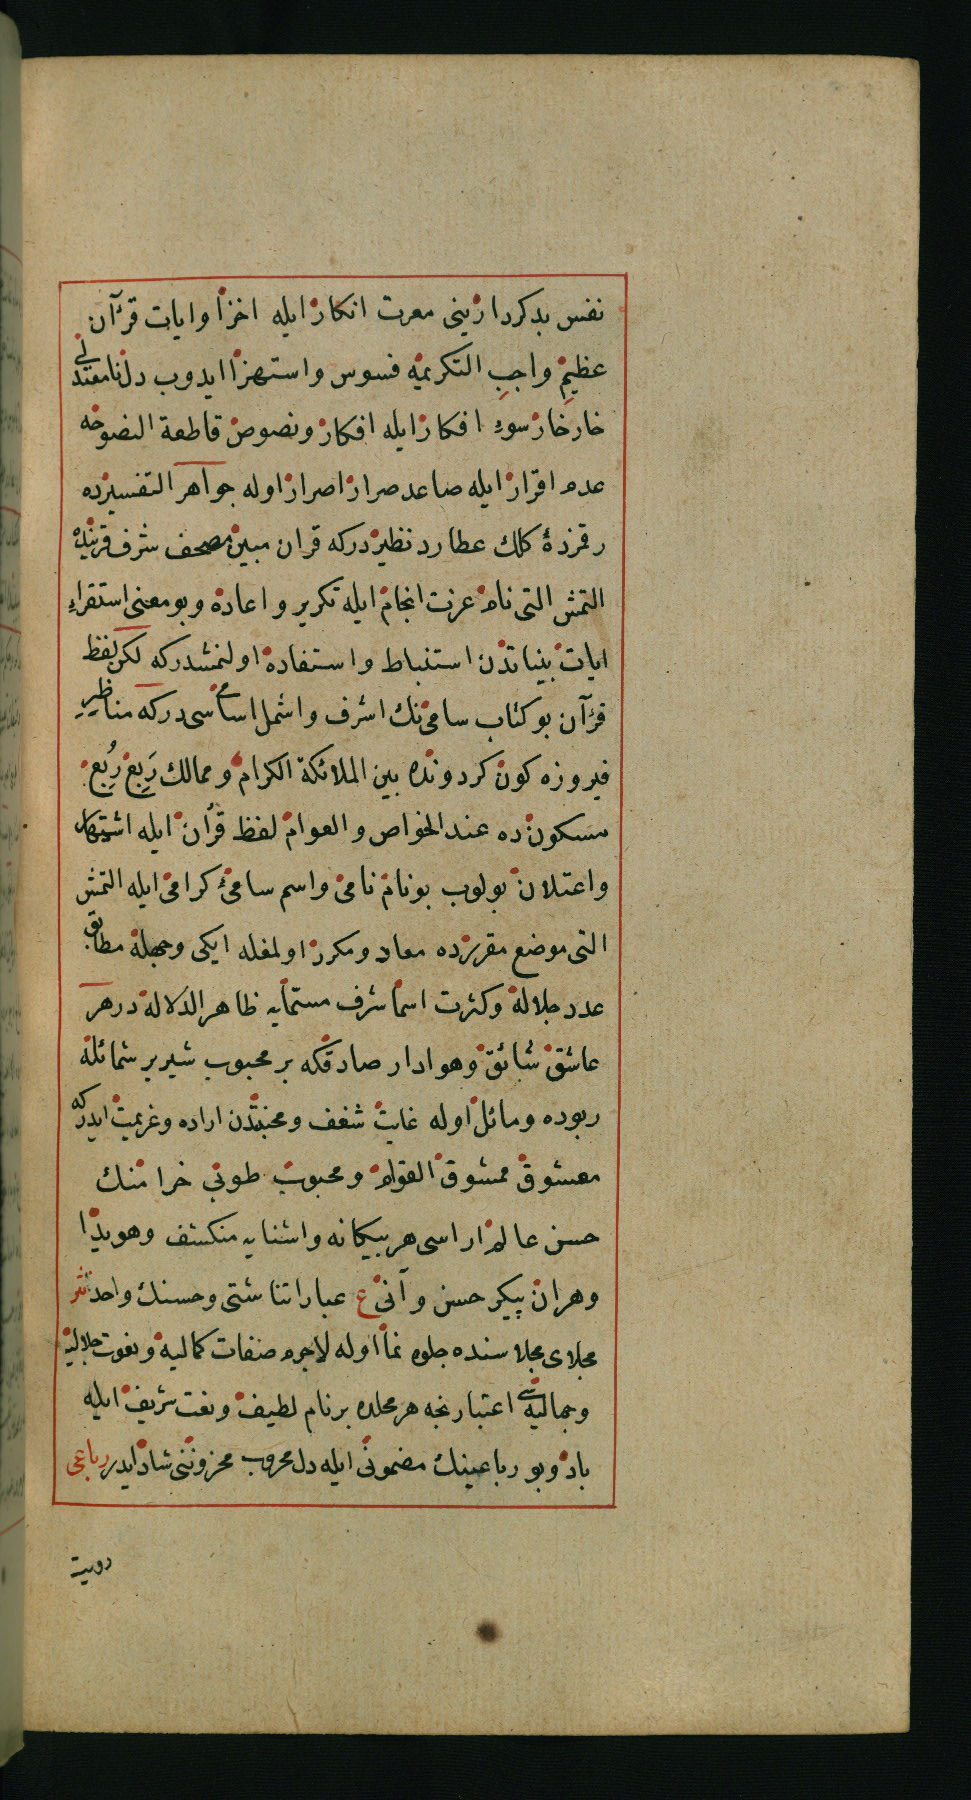 نفس بدكردارينى معرت انكار ايله اخزا وايات قرآن
عظيم واجب التكريمه فسوس واستهزا ايدوب دل نامعتدلى
خارخار سوء افكار ايله افكار ونصوص قاطعة النصوحه
عدم اقرار ايله صاعد صرار اصرار اوله جواهر التفسيرده
رقمزدهٔ كلك عطارد نظيردركه قران مبين مصحف شرف قرينده
التمش التى نام عزت انجام ايله تكرير واعاده وبو معنى استقراء
ايات بيناتدن استنباط واستفاده اولنمشدركه لكن لفظ
قرآن بو كتاب سامىنك اشرف واشمل اسامىسىدركه مناظر
فيروزه كون كردونده بين الملائكة الكرام وممالك ربع ربع
مسكونده عند الخواص والعوام لفظ قرآن ايله اشتهار
واعتلان بولوب بونام نامى واسم سامىء كرامى ايله التمش
التى موضع مقررده معاد ومكرر اولمغله ايكى وجهله مطابق
عدد جلاله وكثرت اسما شرف مسمايه ظاهر الدلاله در هر
عاشق شائق وهوادار صادقكه بر محبوب شيرين شمائله
ربوده ومائل اوله غايت شغف ومحبتدن اراده وعزيمت ايدركه
معشوق ممشوق القوام ومحبوب طوبى خرامنك
حسن عالم اراسى هر بيكانه واشنايه منكشف وهويدا
وهر ان پيكر حسن وآنى ع عباراتنا شتى وحسنك واحد نثر
مجلاى مجلاسنده جلوه نما اوله لاجرم صفات كماليه ونعوت جلاليه
وجماليهسى اعتبارنجه هر محلده بر نام لطيف ونعت شريف ايله
ياد وبو رباعينك مضمونى ايله دل محروب محزوننى شاد ايدر رباعى
دوبيت